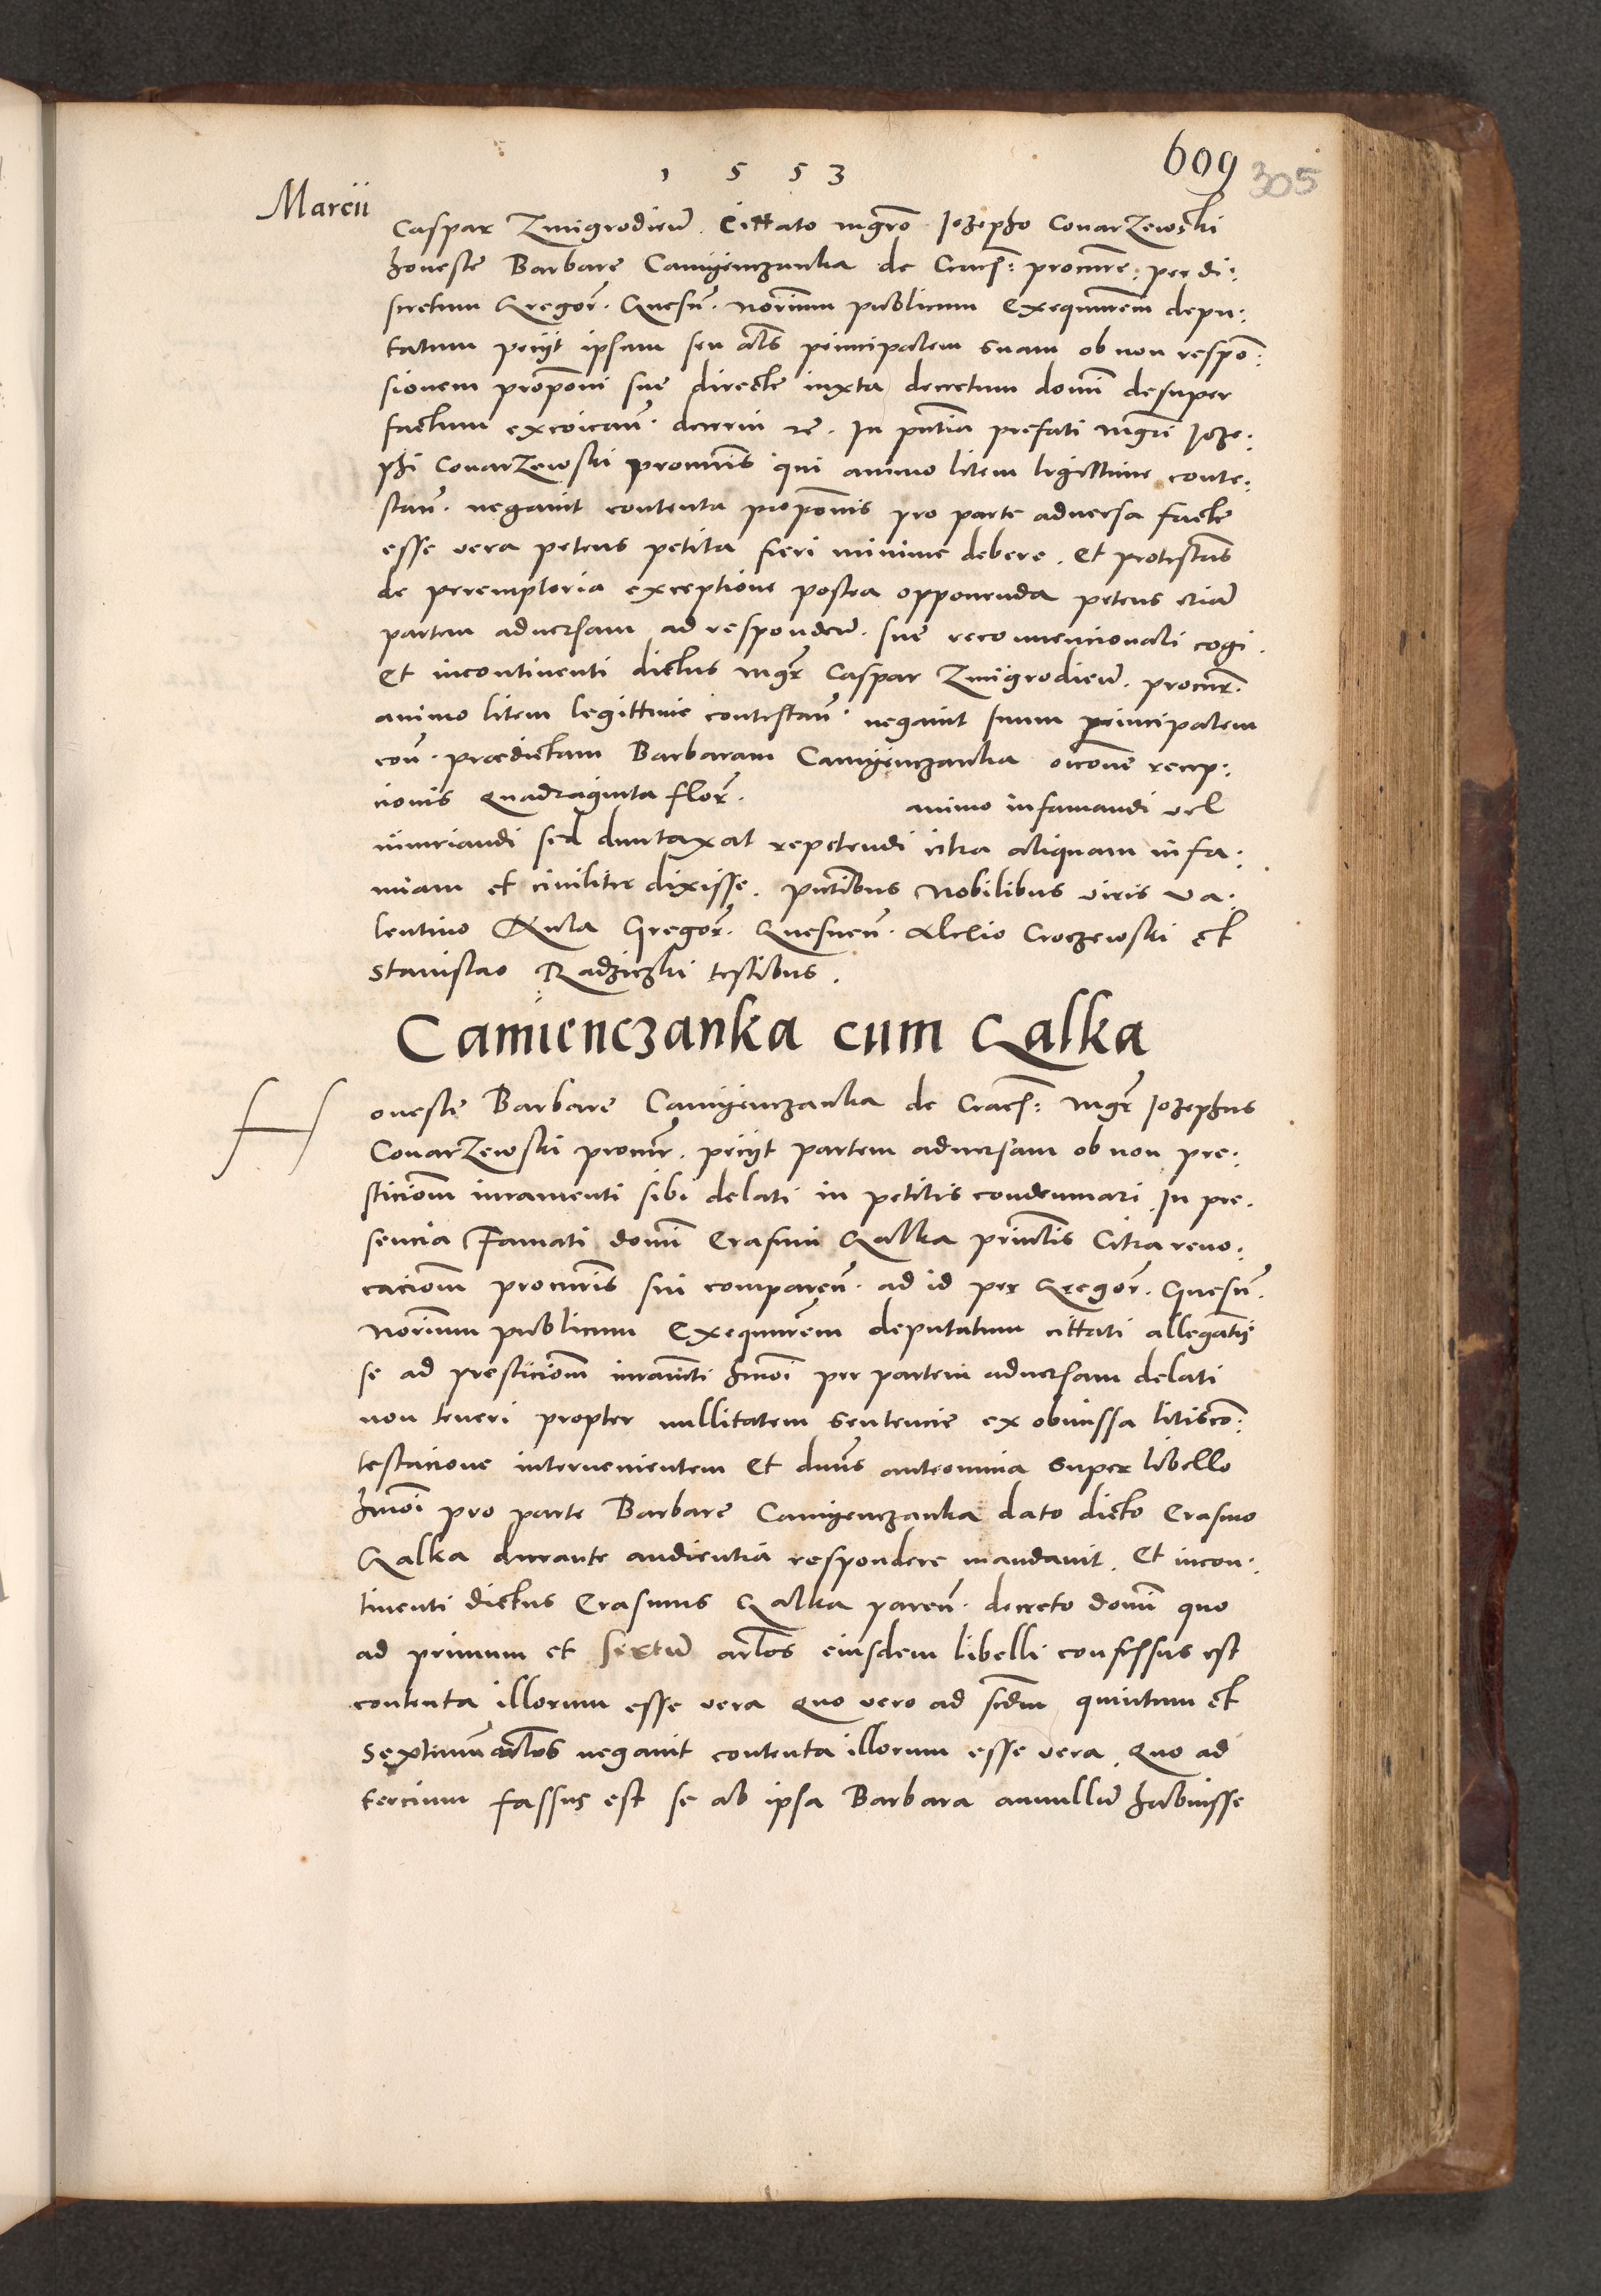 1553
609
305
Marcii
Caspar Zmigrodien̄. Cittato mgrō Jozepho Conarzewski
honestę Barbarę Camyenczanka de Crac̄: procurrē: per di:
scretum Gregor̄. Quesn̄. norium publicum Exequutrem depu:
tatum peciit ipsam seu als principalem suam ob non respon:
sionem propōni suę directę iuxta decretum domī desuper
factum excoican̄. decerni rē. In pn̄tia prefati mgrī Joze:
phi Conarzewski procuris qui animo litem legittime conte:
stan̄. negauit contenta propōnis pro parte aduersa factę
esse vera petens petita fieri minime debere. Et protestans
de peremptoria exceptione postea opponenda petens etiam
partem aduersam ad responden̄. suę reconuencionali cogi.
Et incontinenti dictus mgr̄ Caspar Zmigrodien̄. procur̄.
animo litem legittime contestan̄. negauit suum principalem
con̄. prædictam Barbaram Camyenczanka occōne recep:
cionis Quadraginta flor̄. animo infamandi vel
iniuriandi sed duntaxat repetendi citra aliquam infa:
miam et ciuiliter dixisse. pn̄tibus Nobilibus viris Va:
lentino Gregor̄. Quesnen̄. Alexio Croczewski et
Stanislao Radziczki testibus.
Camienczanka cum Galka
Honestę Barbarę Camyenczanka de Crac̄: mgr̄ Jozephus
Conarzewski procur̄. peciit partem aduersam ob non pre:
sticiom̄ iuramenti sibi delati in petitis condemnari. In pre:
sencia Famati domī Erasmi Galka princīlis Citra reuo:
caciom̄ procuris sui comparen̄. ad id per Gregor̄. Quesn̄.
Norium publicum Exequutrem deputatum cittati allegantis
se ad presticiom̄ iuramti hmōi per partem aduersam delati
non teneri propter nullitatem sentencię ex obmissa litiscon:
testacione interuenientem Et dnūs anteomnia super libello
hmōi pro parte Barbarę Camyenczanka dato dicto Erasmo
Galka durante audientia respondere mandauit. Et incon:
tinenti dictus Erasmus Galka paren̄. decreto domī quo
ad primum et sextum artlos eiusdem libelli confessus est
contenta illorum esse vera Quo vero ad scdm quintum et
septimum artlos negauit contenta illorum esse vera. Quo ad
tercium fassus est se ab ipsa Barbara annullum habuisse